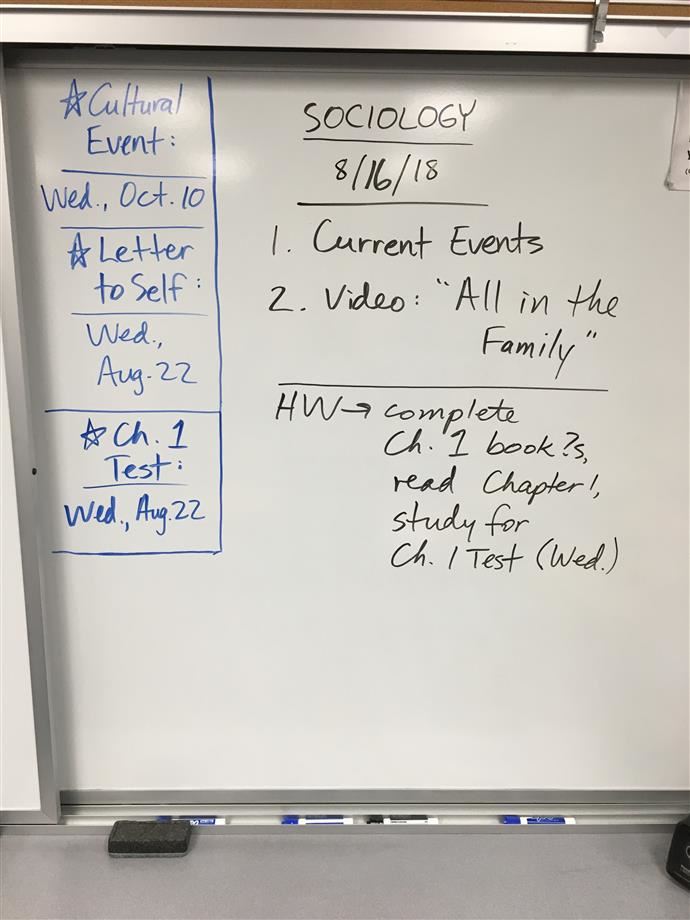 ☆Cultural
Event:
Wed., Oct. 10
☆Letter
to Self:
Wed.,
Aug. 22
☆Ch. 1
Test:
Wed., Aug. 22
SOCIOLOGY
8/16/18
1. Current Events
2. Video: "All in the
Family"
HW→ complete
Ch. 1 book ?s,
read Chapter 1,
study for
Ch. 1 Test (Wed.)